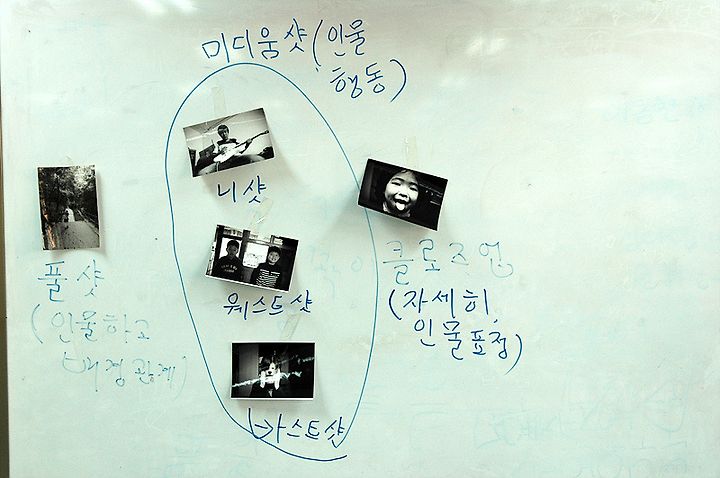 미디움샷(인물
행동)
니샷
웨스트샷
바스트샷
풀샷
(인물하고
배경관계)
클로즈업
(자세히,
인물표정)